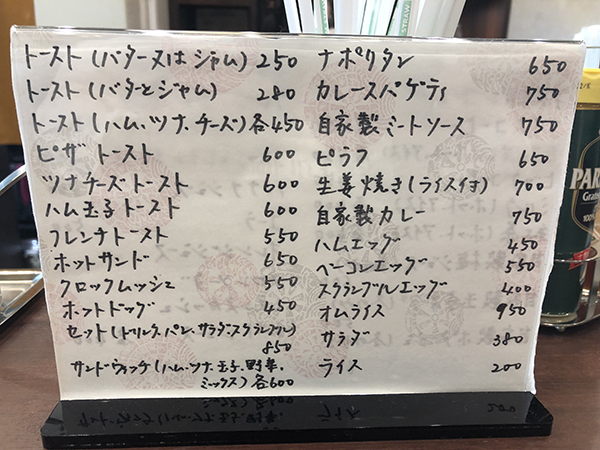 トースト(バター又はジャム) 250
トースト(バターとジャム) 280
トースト(ハム、ツナ、チーズ)各450
ピザトースト 600
ツナチーズトースト 600
ハム玉子トースト 600
フレンチトースト 550
ホットサンド 650
クロックムッシュ 550
ホットドッグ 450
セット(ドリンク、パン、サラダ、スクランブル)
850
サンドウィッチ(ハム、ツナ、玉子、野菜、
ミックス)各600
ナポリタン 650
カレースパゲティ 750
自家製ミートソース 750
ピラフ 650
生姜焼き(ライス付) 700
自家製カレー 750
ハムエッグ 450
ベーコンエッグ 550
スクランブルエッグ 400
オムライス 950
サラダ 380
ライス 200
STRAW
PAR
Grate
100%